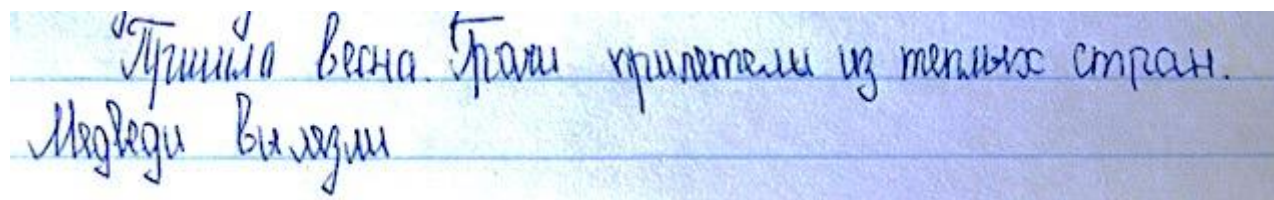 Пришла весна. Грачи прилетели из теплых стран.
Медведи вылезли